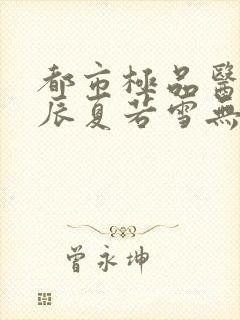 都市極品醫
辰夏若雪無
曾永坤